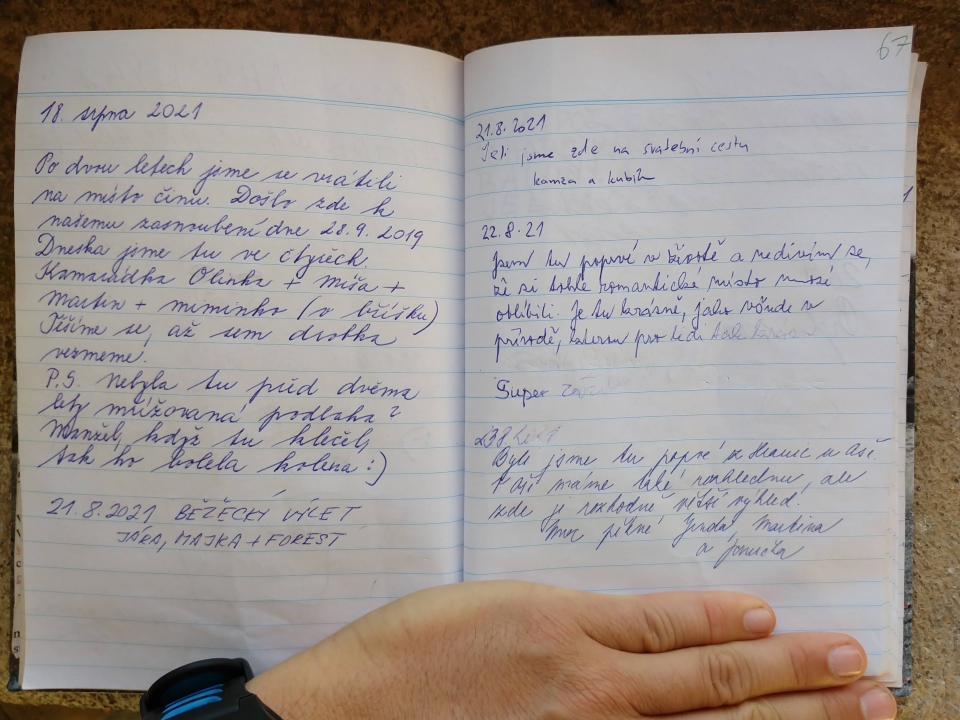 18. srpna 2021
Po dvou letech jsme se vrátili
na místo činu. Došlo zde k
našemu zasnoubení dne 28.9. 2019
Dneska jsme tu ve čtyřech.
Kamarádka Olinka + Míša +
Martin + miminko (v bříšku)
Těšíme se, až sem drobka
vezmeme.
P.S. Nebyla tu před dvěma
lety mřížovaná podlaha?
Manžel, když tu klečel,
tak ho bolela kolena :)
21.8.2021 BĚŽECKÝ VÝLET
JÁRA, MAJKA + FOREST
67
21.8.2021
Jeli jsme zde na svatební cestu
a
22.8.21
Jsem tu poprvé v životě a nedivím se,
že si tohle romantické místo mnozí
oblíbili. Je tu krásně, jako všude v
přírodě, kterou pro lidi
Super
Byli jsme tu poprvé z Hranic u Aše.
V Aši máme také rozhlednu, ale
zde je rozhodně větší výhled.
Moc pěkné Jenda Martina
a